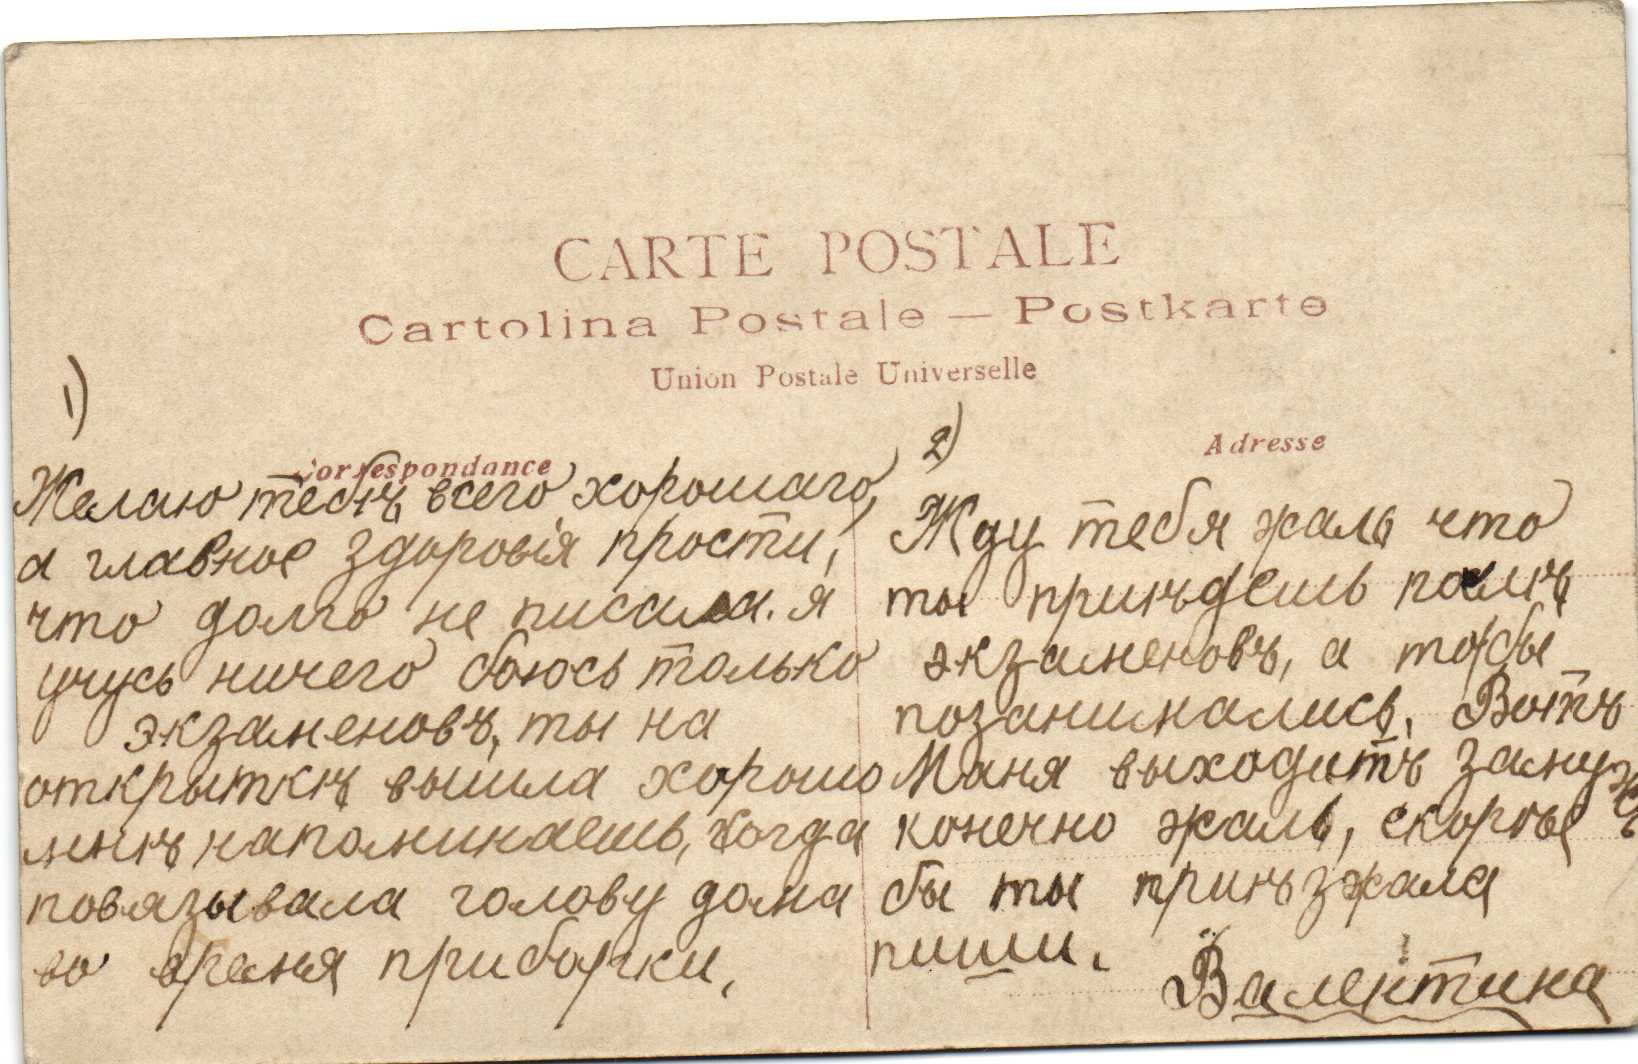 CARTE POSTALE
Cartolina Postale — Postkarte
Union Postale Universelle
Correspondance
Adresse
1)
Желаю тебѣ всего хорошаго,
а главное здоровія прости,
что долго не писала. я
учусь ничего боюсь только
экзаменовъ, ты на
открыткѣ вышла хорошо
мнѣ напоминаешь, когда
повязывала голову дома
во время приборки,
2)
Жду тебя жаль что
ты приѣдешь послѣ
экзаменовъ, а то бы
позанимались. Вотъ
Маня выходитъ замужъ
конечно жаль, скорѣе
бы ты приѣзжала
пиши.
Валентина